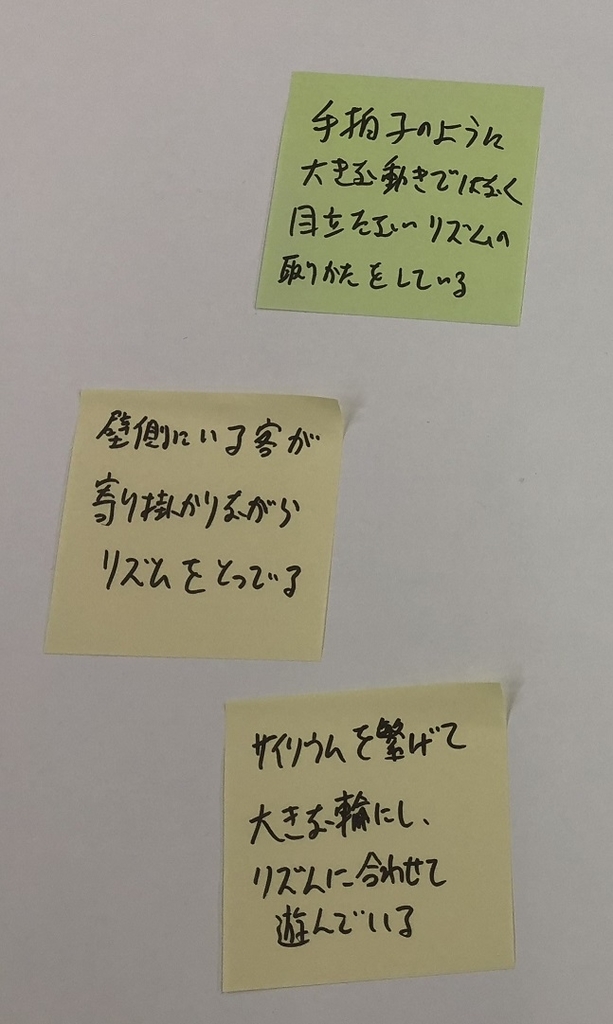 手拍子のように
大きな動きではなく
目立たないリズムの
取りかたをしている
壁側にいる客が
寄り掛かりながら
リズムをとっている
サイリウムを繋げて
大きな輪にし、
リズムに合わせて
遊んでいる